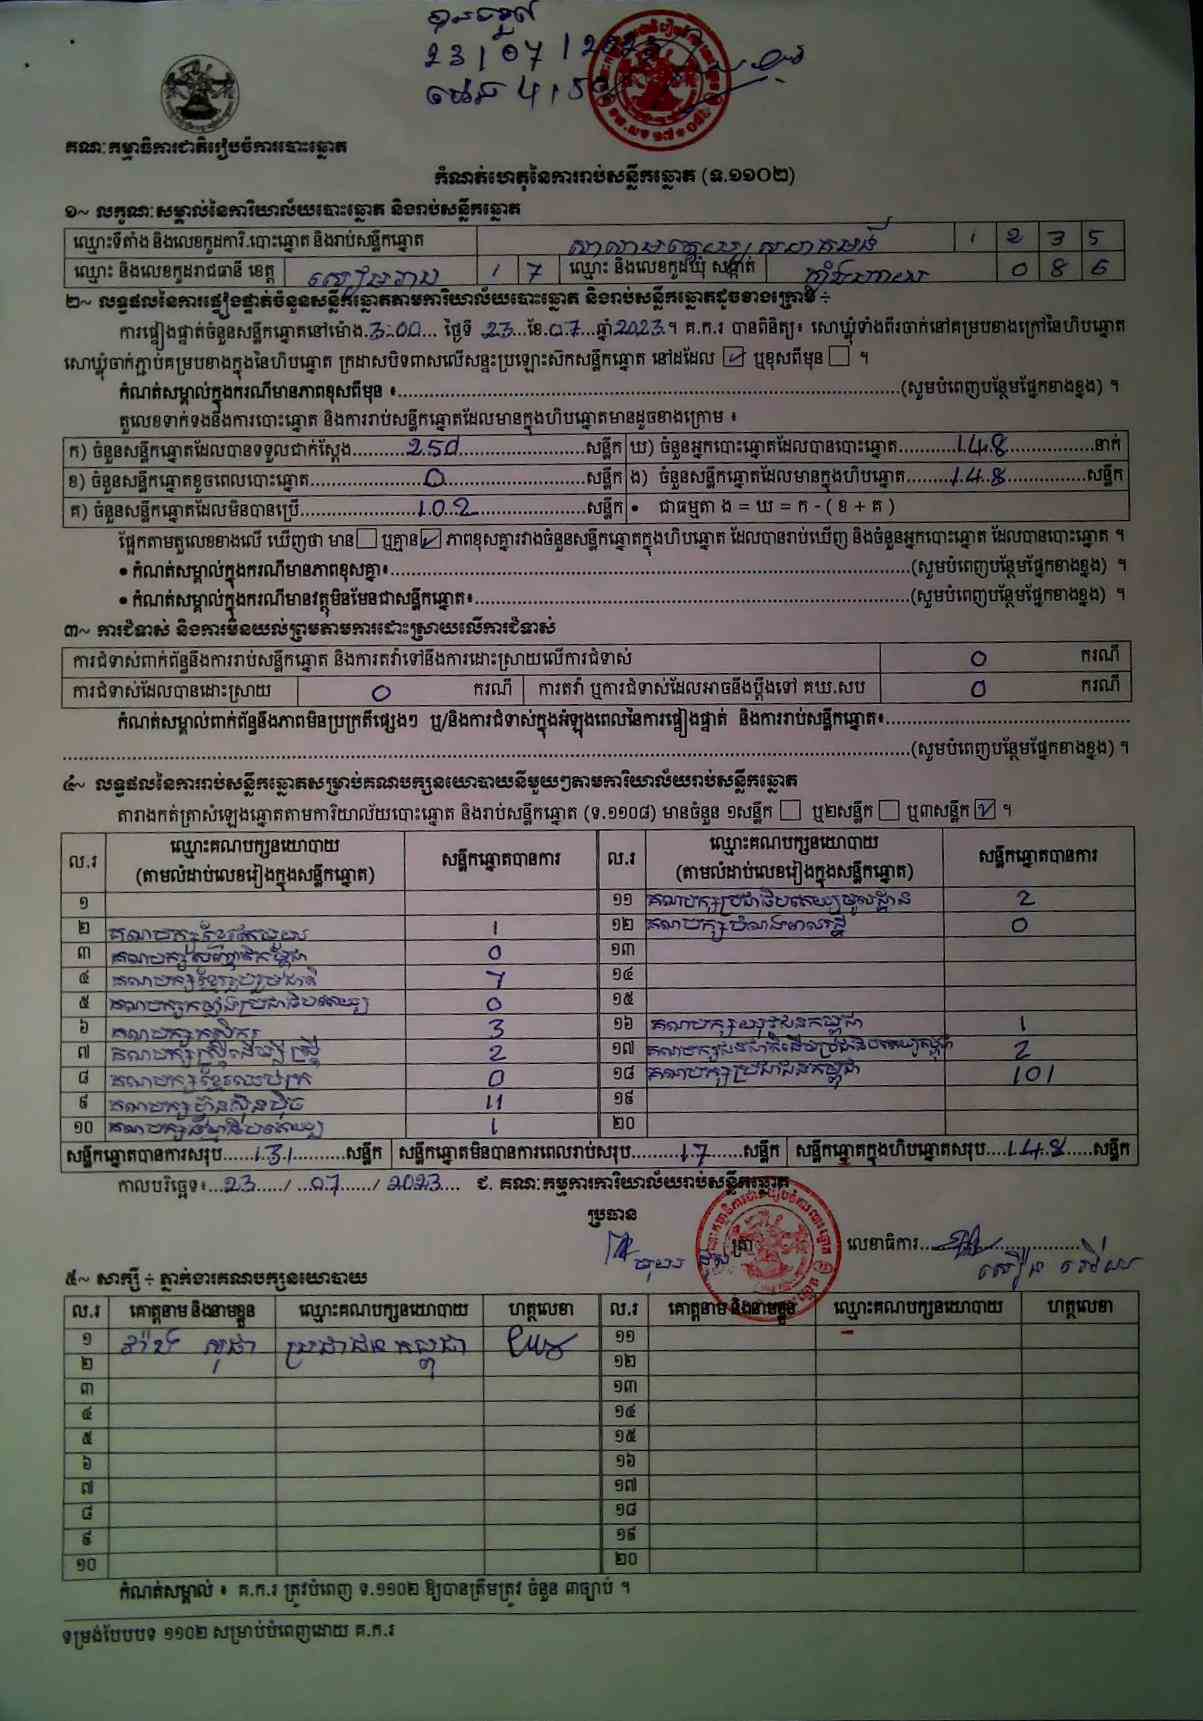 បានទទួល
23/07/2023
ម៉ោង 4:50
គណៈកម្មាធិការជាតិរៀបចំការបោះឆ្នោត
កំណត់ហេតុនៃការរាប់សន្លឹកឆ្នោត (ទ.១១០២)
១~ លក្ខណៈសម្គាល់នៃការិយាល័យបោះឆ្នោត និងរាប់សន្លឹកឆ្នោត
ឈ្មោះទីតាំង និងលេខកូដការិ.បោះឆ្នោត និងរាប់សន្លឹកឆ្នោត 1 2 3 5
ឈ្មោះ និងលេខកូដរាជធានី ខេត្ត សៀមរាប 1 7 ឈ្មោះ និងលេខកូដឃុំ សង្កាត់ 0 8 6
២~ លទ្ធផលនៃការផ្ទៀងផ្ទាត់ចំនួនសន្លឹកឆ្នោតតាមការិយាល័យបោះឆ្នោត និងរាប់សន្លឹកឆ្នោតដូចខាងក្រោម ÷
ការផ្ទៀងផ្ទាត់ចំនួនសន្លឹកឆ្នោតនៅម៉ោង.3:00... ថ្ងៃទី 23...ខែ.07...ឆ្នាំ2023.។ គ.ក.រ បានពិនិត្យ៖ សោឃ្លុំទាំងពីរចាក់នៅគម្របខាងក្រៅនៃហិបឆ្នោត
សោឃ្លុំចាក់ភ្ជាប់គម្របខាងក្នុងនៃហិបឆ្នោត ក្រដាសបិទពាសលើសន្ទះប្រឡោះស៊កសន្លឹកឆ្នោត នៅដដែល ☑ ឬខុសពីមុន ☐ ។
កំណត់សម្គាល់ក្នុងករណីមានភាពខុសពីមុន ៖..........(សូមបំពេញបន្ថែមផ្នែកខាងខ្នង) ។
តួលេខទាក់ទងនឹងការបោះឆ្នោត និងការរាប់សន្លឹកឆ្នោតដែលមានក្នុងហិបឆ្នោតមានដូចខាងក្រោម ៖
ក) ចំនួនសន្លឹកឆ្នោតដែលបានទទួលជាក់ស្តែង..........250..........សន្លឹក ឃ) ចំនួនអ្នកបោះឆ្នោតដែលបានបោះឆ្នោត..........148..........នាក់
ខ) ចំនួនសន្លឹកឆ្នោតខូចពេលបោះឆ្នោត..........0..........សន្លឹក ង) ចំនួនសន្លឹកឆ្នោតដែលមានក្នុងហិបឆ្នោត..........148..........សន្លឹក
គ) ចំនួនសន្លឹកឆ្នោតដែលមិនបានប្រើ..........102..........សន្លឹក • ជាធម្មតា ង = ឃ = ក - ( ខ + គ )
ផ្អែកតាមតួលេខខាងលើ ឃើញថា មាន ☐ ឬគ្មាន ☑ ភាពខុសគ្នារវាងចំនួនសន្លឹកឆ្នោតក្នុងហិបឆ្នោត ដែលបានរាប់ឃើញ និងចំនួនអ្នកបោះឆ្នោត ដែលបានបោះឆ្នោត ។
• កំណត់សម្គាល់ក្នុងករណីមានភាពខុសគ្នា៖..........(សូមបំពេញបន្ថែមផ្នែកខាងខ្នង) ។
• កំណត់សម្គាល់ក្នុងករណីមានវត្ថុមិនមែនជាសន្លឹកឆ្នោត៖..........(សូមបំពេញបន្ថែមផ្នែកខាងខ្នង) ។
៣~ ការជំទាស់ និងការមិនយល់ព្រមតាមការដោះស្រាយលើការជំទាស់
ការជំទាស់ពាក់ព័ន្ធនឹងការរាប់សន្លឹកឆ្នោត និងការតវ៉ាទៅនឹងការដោះស្រាយលើការជំទាស់ 0 ករណី
ការជំទាស់ដែលបានដោះស្រាយ 0 ករណី ការតវ៉ា ឬការជំទាស់ដែលអាចនឹងប្តឹងទៅ គឃ.សប 0 ករណី
កំណត់សម្គាល់ពាក់ព័ន្ធនឹងភាពមិនប្រក្រតីផ្សេងៗ ឬ/និងការជំទាស់ក្នុងអំឡុងពេលនៃការផ្ទៀងផ្ទាត់ និងការរាប់សន្លឹកឆ្នោត៖..........
..........(សូមបំពេញបន្ថែមផ្នែកខាងខ្នង) ។
៤~ លទ្ធផលនៃការរាប់សន្លឹកឆ្នោតសម្រាប់គណបក្សនយោបាយនីមួយៗតាមការិយាល័យរាប់សន្លឹកឆ្នោត
តារាងកត់ត្រាសំឡេងឆ្នោតតាមការិយាល័យបោះឆ្នោត និងរាប់សន្លឹកឆ្នោត (ទ.១១០៨) មានចំនួន ១សន្លឹក ☐ ឬ២សន្លឹក ☐ ឬ៣សន្លឹក ☑ ។
ល.រ ឈ្មោះគណបក្សនយោបាយ (តាមលំដាប់លេខរៀងក្នុងសន្លឹកឆ្នោត) សន្លឹកឆ្នោតបានការ ល.រ ឈ្មោះគណបក្សនយោបាយ (តាមលំដាប់លេខរៀងក្នុងសន្លឹកឆ្នោត) សន្លឹកឆ្នោតបានការ
១ ១១ គណបក្សប្រជាធិបតេយ្យមូលដ្ឋាន 2
២ គណបក្សខ្មែរតែមួយ 1 ១២ គណបក្ស 0
៣ គណបក្សសញ្ជាតិកម្ពុជា 0 ១៣
៤ គណបក្សខ្មែររួបរួមជាតិ 7 ១៤
៥ គណបក្សកម្លាំងប្រជាធិបតេយ្យ 0 ១៥
៦ គណបក្សកសិករ 3 ១៦ គណបក្សយុវជនកម្ពុជា 1
៧ គណបក្សស្ត្រីដើម្បីស្ត្រី 2 ១៧ គណបក្សជនជាតិដើមប្រជាធិបតេយ្យកម្ពុជា 2
៨ គណបក្សខ្មែរឈប់ក្រ 0 ១៨ គណបក្សប្រជាជនកម្ពុជា 101
៩ គណបក្សហ៊្វុនស៊ិនប៉ិច 11 ១៩
១០ គណបក្សធម្មាធិបតេយ្យ 1 ២០
សន្លឹកឆ្នោតបានការសរុប......131..........សន្លឹក សន្លឹកឆ្នោតមិនបានការពេលរាប់សរុប..........17......សន្លឹក សន្លឹកឆ្នោតក្នុងហិបឆ្នោតសរុប....148.....សន្លឹក
កាលបរិច្ឆេទ៖...23...../...07....../ 2023.... ជ. គណៈកម្មការការិយាល័យរាប់សន្លឹកឆ្នោត
ប្រធាន
ត្រា
លេខាធិការ..........
៥~ សាក្សី ÷ ភ្នាក់ងារគណបក្សនយោបាយ
ល.រ គោត្តនាម និងនាមខ្លួន ឈ្មោះគណបក្សនយោបាយ ហត្ថលេខា ល.រ គោត្តនាម និងនាមខ្លួន ឈ្មោះគណបក្សនយោបាយ ហត្ថលេខា
១ សុផា ប្រជាជនកម្ពុជា ១១
២ ១២
៣ ១៣
៤ ១៤
៥ ១៥
៦ ១៦
៧ ១៧
៨ ១៨
៩ ១៩
១០ ២០
កំណត់សម្គាល់ ៖ គ.ក.រ ត្រូវបំពេញ ទ.១១០២ ឱ្យបានត្រឹមត្រូវ ចំនួន ៣ច្បាប់ ។
ទម្រង់បែបបទ ១១០២ សម្រាប់បំពេញដោយ គ.ក.រ